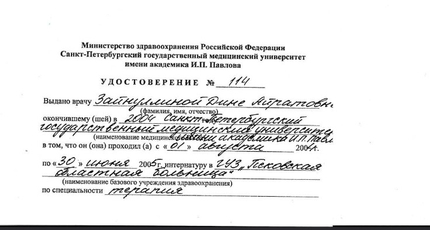 Министерство здравоохранения Российской Федерации
Санкт-Петербургский государственный медицинский университет
имени академика И.П. Павлова
УДОСТОВЕРЕНИЕ № 114
Выдано врачу Зайнуллиной Дине Маратовн.
(фамилия, имя, отчество)
окончившему (шей) в 2004 Санкт-Петербургский
государственный медицинский университет
имени академика И.П. Павл
(наименование медицин
в том, что он (она) проходил (а) с «01» августа 2004г.
по «30» июня 2005г. интернатуру в ГУЗ „Псковская
областная больница"
(наименование базового учреждения здравоохранения)
по специальности терапия